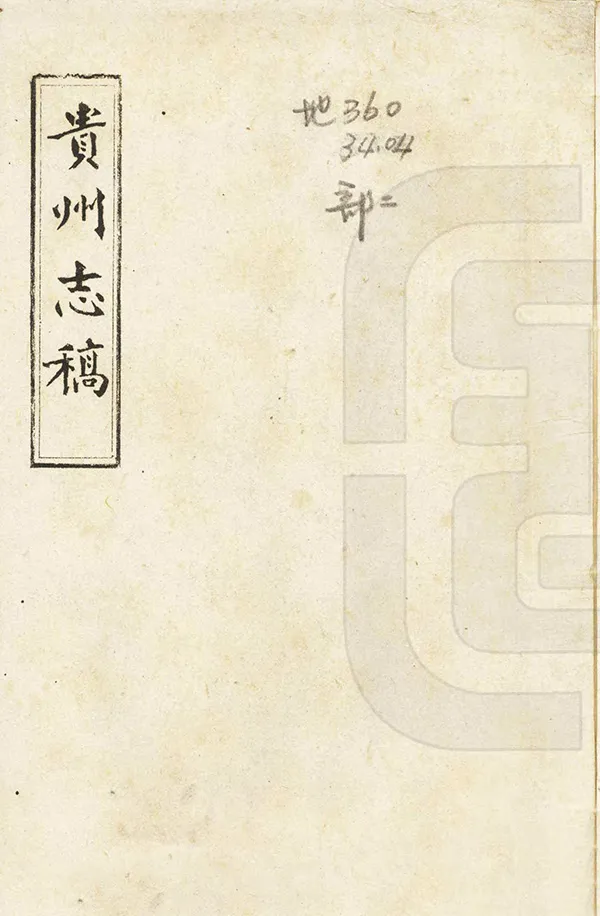 貴州志稿
地360
34.04
部二